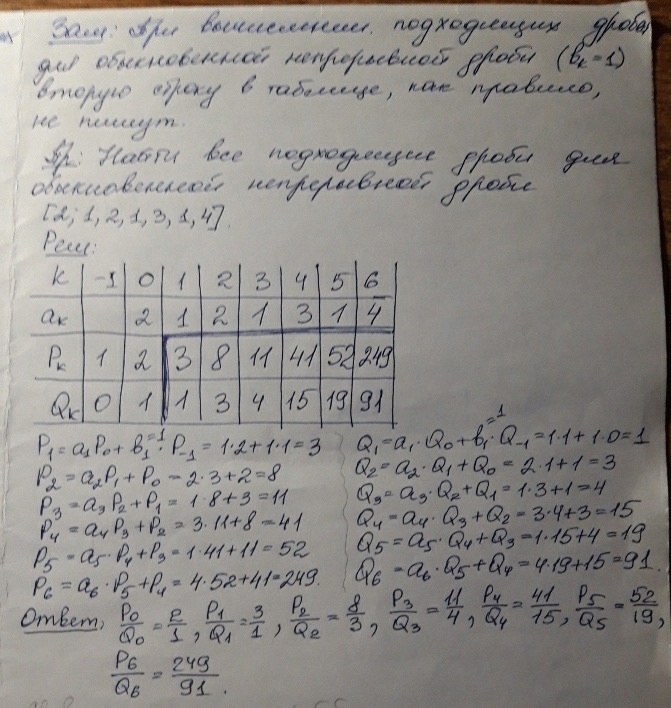 Зам: При вычислении подходящих дробей
для обыкновенной непрерывной дроби (bₖ=1)
вторую строку в таблице, как правило,
не пишут.
Пр: Найти все подходящие дроби для
обыкновенной непрерывной дроби
[2; 1, 2, 1, 3, 1, 4].
Реш:
k -1 0 1 2 3 4 5 6
aₖ 2 1 2 1 3 1 4
Pₖ 1 2 3 8 11 41 52 249
Qₖ 0 1 1 3 4 15 19 91
P₁=a₁P₀+b₁⁼¹·P₋₁=1·2+1·1=3
P₂=a₂P₁+P₀=2·3+2=8
P₃=a₃P₂+P₁=1·8+3=11
P₄=a₄P₃+P₂=3·11+8=41
P₅=a₅·P₄+P₃=1·41+11=52
P₆=a₆·P₅+P₄=4·52+41=249.
Q₁=a₁·Q₀+b₁⁼¹·Q₋₁=1·1+1·0=1
Q₂=a₂·Q₁+Q₀=2·1+1=3
Q₃=a₃·Q₂+Q₁=1·3+1=4
Q₄=a₄·Q₃+Q₂=3·4+3=15
Q₅=a₅·Q₄+Q₃=1·15+4=19
Q₆=a₆·Q₅+Q₄=4·19+15=91.
Ответ, P₀/Q₀=2/1, P₁/Q₁=3/1, P₂/Q₂=8/3, P₃/Q₃=11/4, P₄/Q₄=41/15, P₅/Q₅=52/19,
P₆/Q₆=249/91.